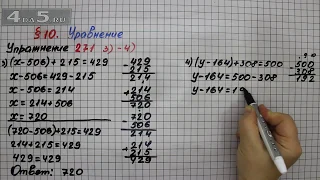 4ДУ5.РУ
§10. Уравнение
Упражнение 271 3)-4)
3)(x-506)+215=429
x-506=429-215
x-506=214
x=214+506
x=720
(720-506)+215=429
214+215=429
429=429
Ответ: 720
429
-215
214
+214
506
720
-720
506
214
+214
215
429
4)(y-164)+308=500
y-164=500-308
y-164=1
-500
308
192